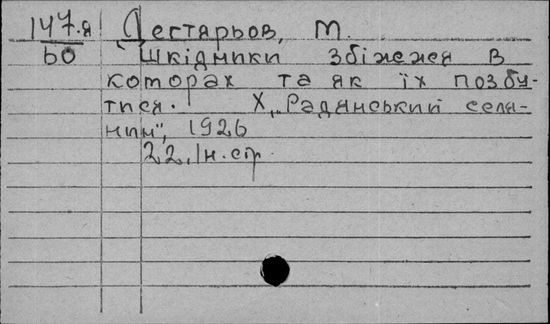 147.я Дегтярьов, М.
60 Шкідники збіжжя в
коморах та як їх позбу-
тися. Х, „Радянський селя-
нин", 1926
22, Iн. стр.